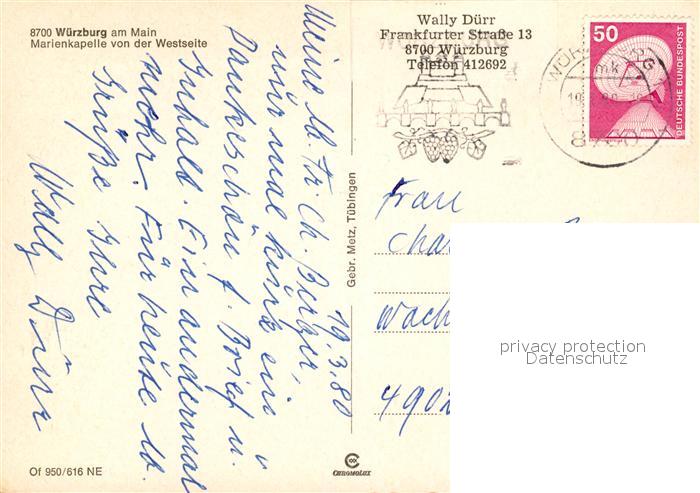 8700 Würzburg am Main
Marienkapelle von der Westseite
Wally Dürr
Frankfurter Straße 13
8700 Würzburg
Telefon 412692
50
DEUTSCHE BUNDESPOST
19.3.80
Meine lb. Fr. Ch. Berger,
nur mal kurz ein
Dankeschön f. Brief u.
Inhalt. Ein andermal
mehr. Für heute lb.
Grüße Ihre
Wally Dürr
Gebr. Metz, Tübingen
Frau
Cha
Wach
490
privacy protection
Datenschutz
Of 950/616 NE
CHROMOLUX